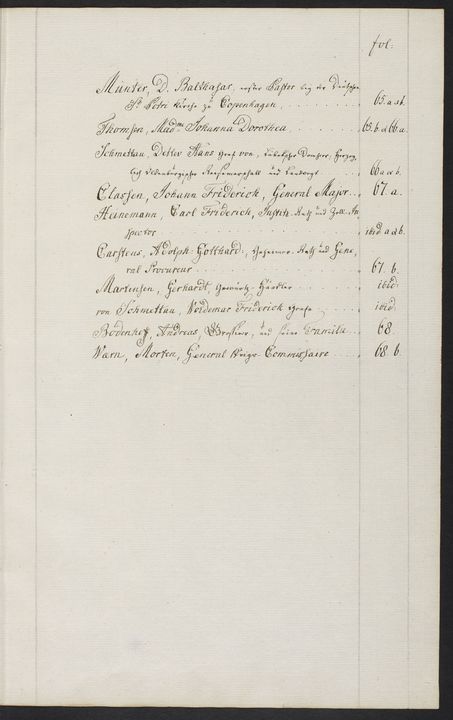 fol:
Münter, D. Balthasar, erster Pastor bey der Deutschen
St. Petri Kirche zu Copenhagen, 65. a et b.
Thomsen, Madme Johanna Dorothea 65. b. et 66 a.
Schmettau, Detlev Hans Graf von,
66 a et b.
Classen, Johann Friderich, General Major 67. a.
Heinemann, Carl Friderich, Justitz-Rath und Zoll-In-
spector ibid a et b.
Carstens, Adolph Gotthard, Geheimer-Rath und Gene-
ral Procureur 67. b.
Martensen, Gerhardt, Gewürtz-Händler ibid:
von Schmettau, Woldemar Friderich Grafe ibid:
Bodenhoff, Andreas, Grosirer, und seine Familie 68.
Warn, Morten, General Krigs-Commissaire 68. b.